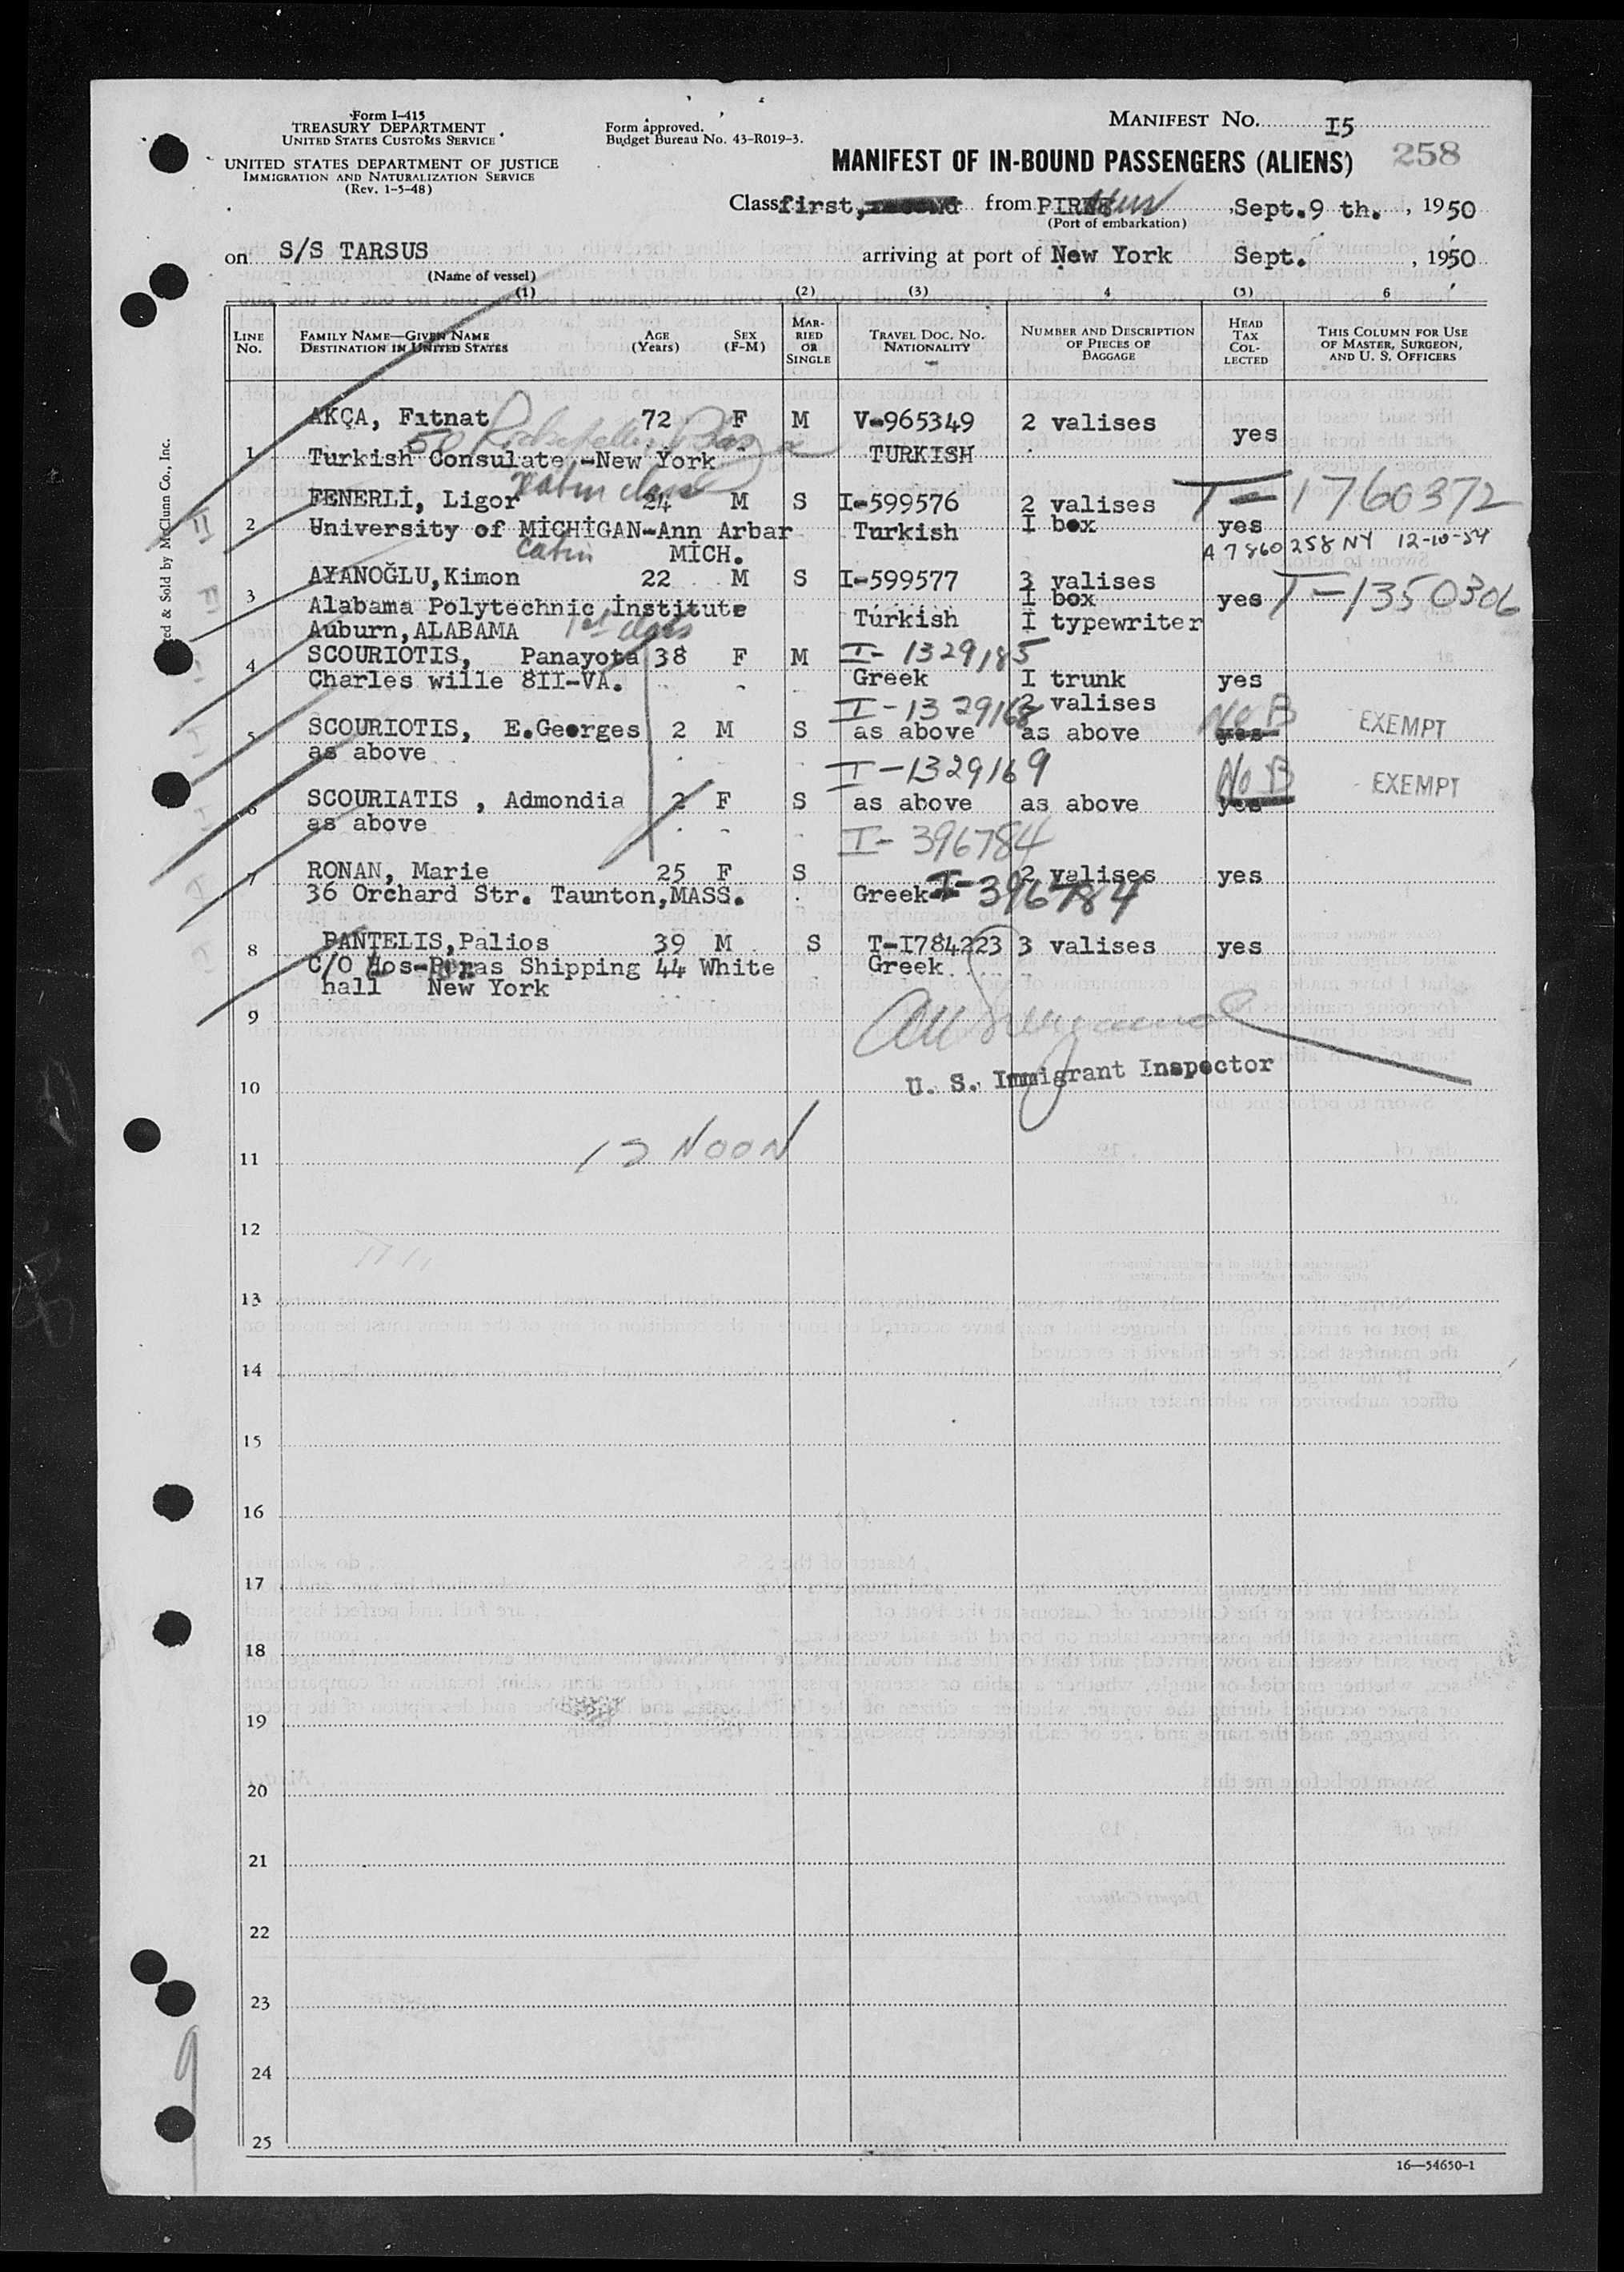 Form I-415
TREASURY DEPARTMENT
UNITED STATES CUSTOMS SERVICE
UNITED STATES DEPARTMENT OF JUSTICE
IMMIGRATION AND NATURALIZATION SERVICE
(Rev. 1-5-48)
Form approved.
Budget Bureau No. 43-R019-3.
MANIFEST No. I5
MANIFEST OF IN-BOUND PASSENGERS (ALIENS) 258
Class first, from , Sept.9 th. , 1950
(Port of embarkation)
on S/S TARSUS arriving at port of New York Sept. , 1950
(Name of vessel)
(1) (2) (3) 4 (5) 6
LINE No. FAMILY NAME—GIVEN NAME DESTINATION IN UNITED STATES AGE (Years) SEX (F-M) MARRIED OR SINGLE TRAVEL DOC. NO. NATIONALITY NUMBER AND DESCRIPTION OF PIECES OF BAGGAGE HEAD TAX COLLECTED THIS COLUMN FOR USE OF MASTER, SURGEON, AND U. S. OFFICERS
AKÇA, Fıtnat 72 F M V-965349 2 valises yes
50 Rockefeller Plaza
1 Turkish Consulate,-New York TURKISH
Cabin class
FENERLİ, Ligor 24 M S I-599576 2 valises T-1760372
2 University of MİCHİGAN-Ann Arbar Turkish I box yes
Cabin MİCH. A7860258 NY 12-10-54
AYANOĞLU,Kimon 22 M S I-599577 3 valises
3 Alabama Polytechnic İnstitute I box yes T-1350306
Auburn,ALABAMA 1st class Turkish I typewriter
4 SCOURIOTIS, Panayota 38 F M I-1329185
Charles wille 8II-VA. Greek I trunk yes
I-1329168 2 valises No B
5 SCOURIOTIS, E.Georges 2 M S as above as above yes EXEMPT
as above
I-1329169 No B EXEMPT
6 SCOURIATIS , Admondia 2 F S as above as above yes
as above
I-396784
7 RONAN, Marie 25 F S 2 valises yes
36 Orchard Str. Taunton,MASS. Greek I-396784
8 PANTELIS,Palios 39 M S T-I784223 3 valises yes
C/O Shipping 44 White Greek
hall New York
9
U. S. Immigrant Inspector
10
12 NOON
11
12
13
14
15
16
17
18
19
20
21
22
23
24
25
16—54650-1
9
& Sold by McClunn Co., Inc.